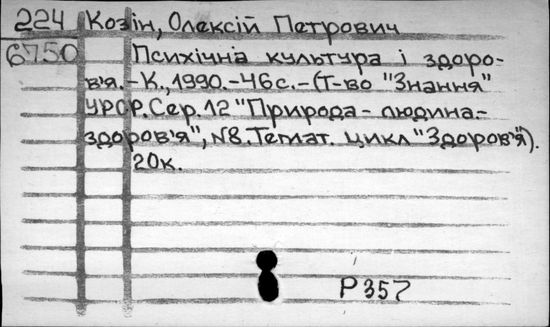 224 Козін, Олексій Петрович
6750 Психічна культура і здоро-
в'я.-К.,1990.-46с.-(Т-во "Знання"
УРСР.Сер.12 "Природа-людина-
здоров'я", №8.Темат. цикл "Здоров'я").
20к.
Р357